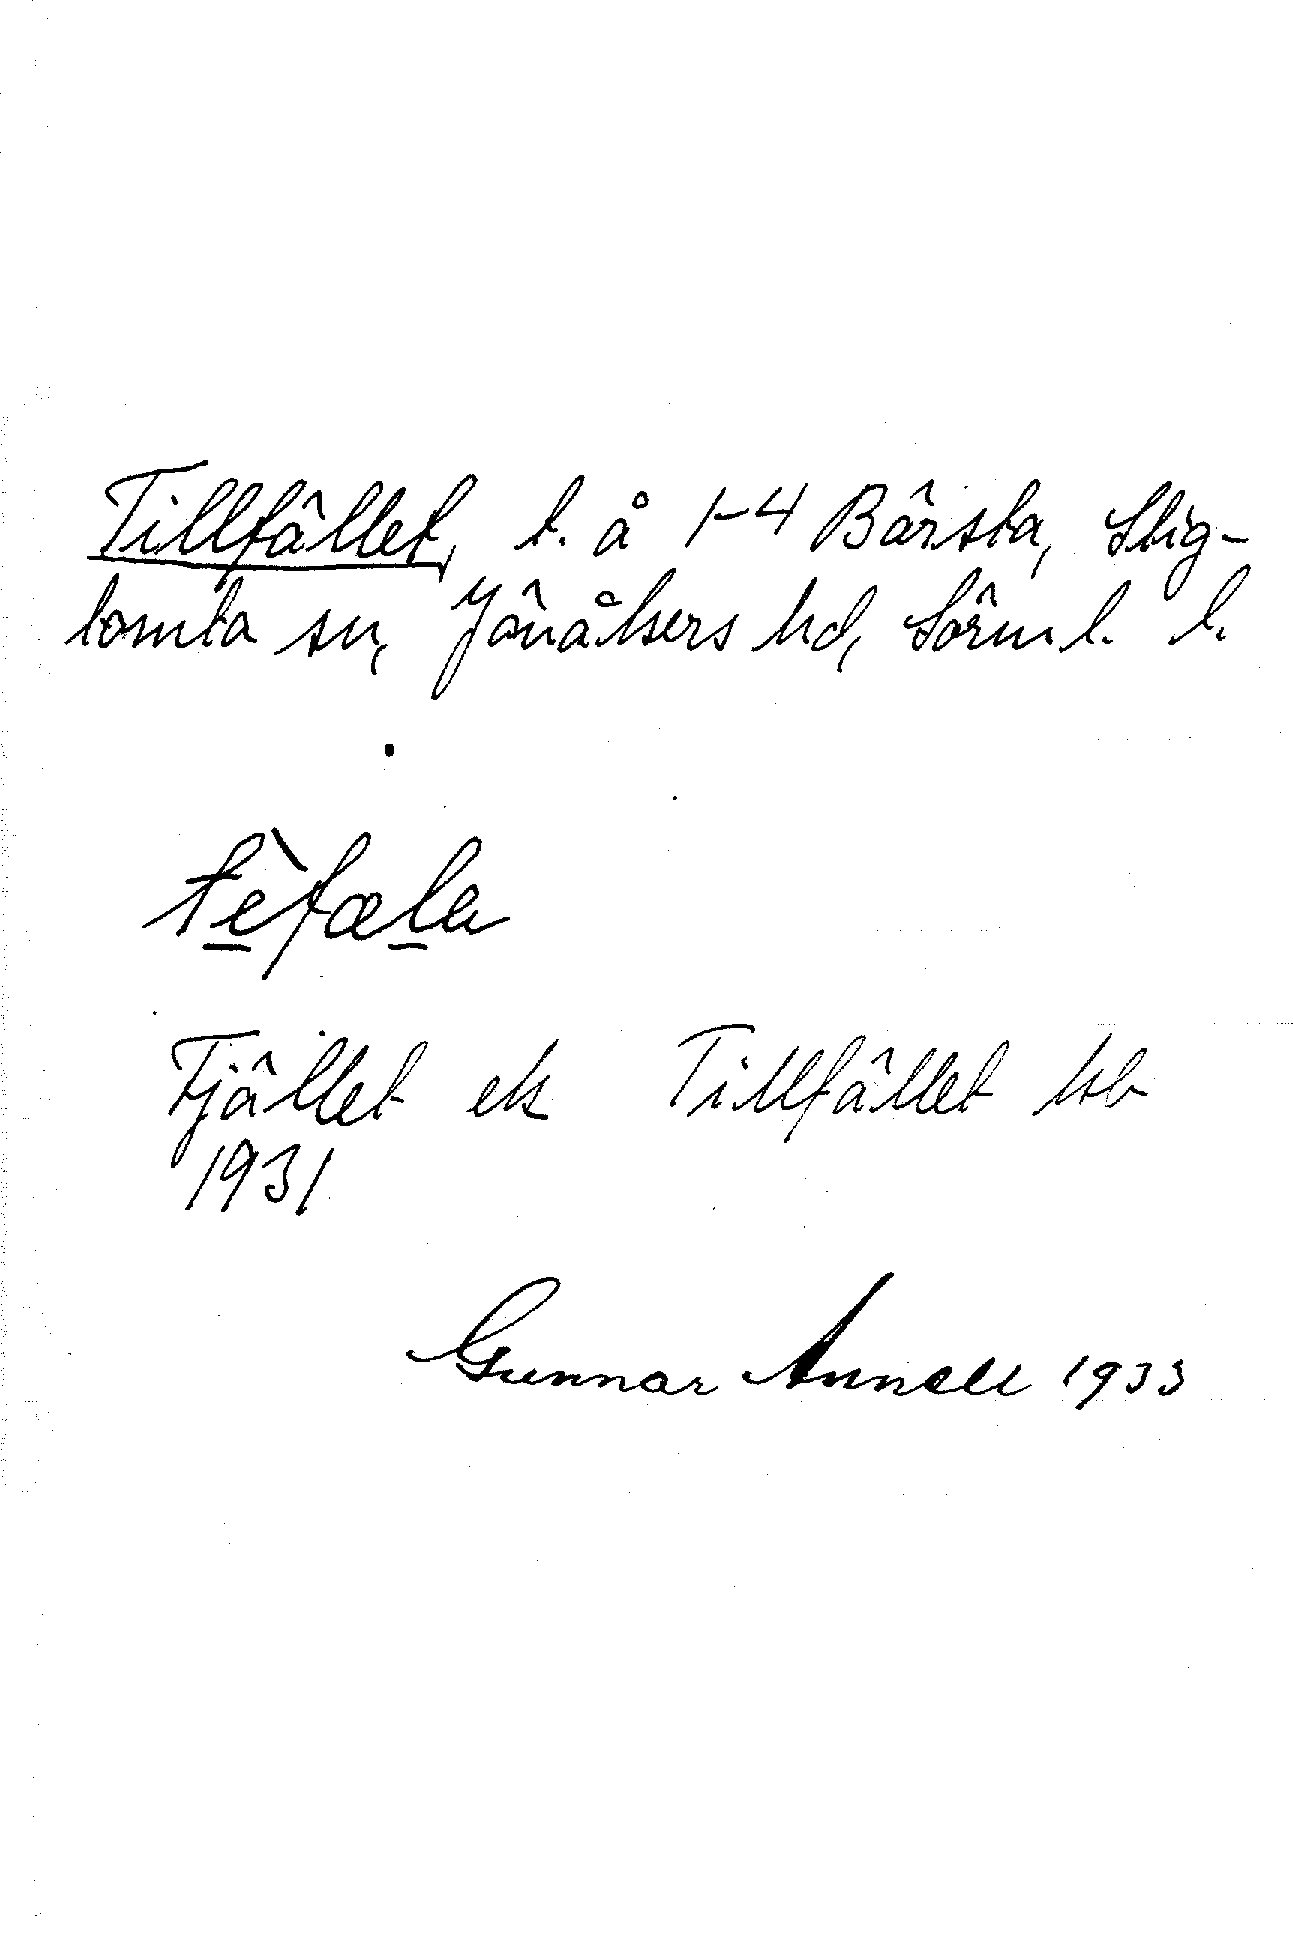 Tillfället, t. å 1-4 Bärsta, Stig-
tomta sn, Jönåkers hd, Sörml. l.
tèfæla
Fjället ek Tillfället ksb
1931
Gunnar Annell 1933